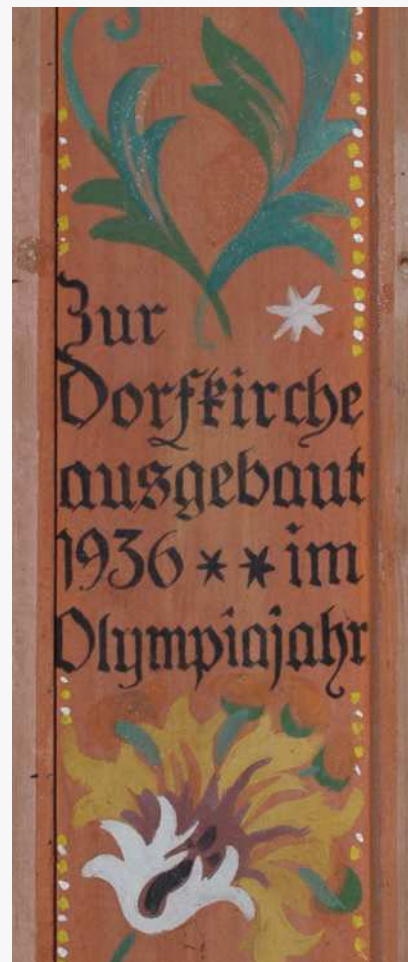 Zur
Dorfkirche
ausgebaut
1936 ** im
Olympiajahr